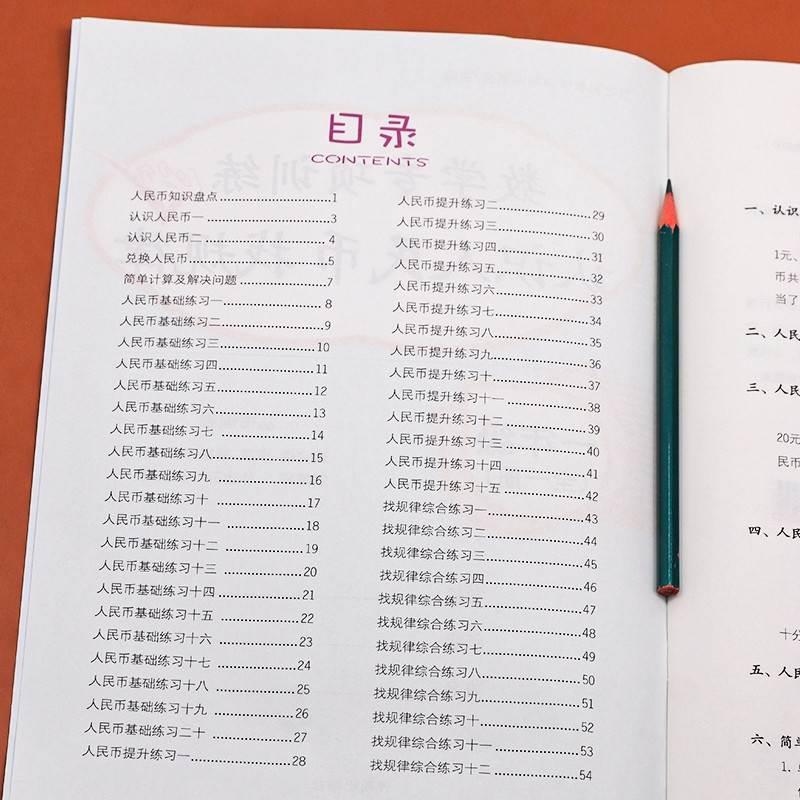 目录
CONTENTS
人民币知识盘点……1
认识人民币一……3
认识人民币二……4
兑换人民币……5
简单计算及解决问题……7
人民币基础练习一……8
人民币基础练习二……9
人民币基础练习三……10
人民币基础练习四……11
人民币基础练习五……12
人民币基础练习六……13
人民币基础练习七……14
人民币基础练习八……15
人民币基础练习九……16
人民币基础练习十……17
人民币基础练习十一……18
人民币基础练习十二……19
人民币基础练习十三……20
人民币基础练习十四……21
人民币基础练习十五……22
人民币基础练习十六……23
人民币基础练习十七……24
人民币基础练习十八……25
人民币基础练习十九……26
人民币基础练习二十……27
人民币提升练习一……28
人民币提升练习二……29
人民币提升练习三……30
人民币提升练习四……31
人民币提升练习五……32
人民币提升练习六……33
人民币提升练习七……34
人民币提升练习八……35
人民币提升练习九……36
人民币提升练习十……37
人民币提升练习十一……38
人民币提升练习十二……39
人民币提升练习十三……40
人民币提升练习十四……41
人民币提升练习十五……42
找规律综合练习一……43
找规律综合练习二……44
找规律综合练习三……45
找规律综合练习四……46
找规律综合练习五……47
找规律综合练习六……48
找规律综合练习七……49
找规律综合练习八……50
找规律综合练习九……51
找规律综合练习十……52
找规律综合练习十一……53
找规律综合练习十二……54
一、认识
1元、
币共
当了
二、人民
三、人民
20元
民币
四、人民
十分
五、人民
六、简单
1.